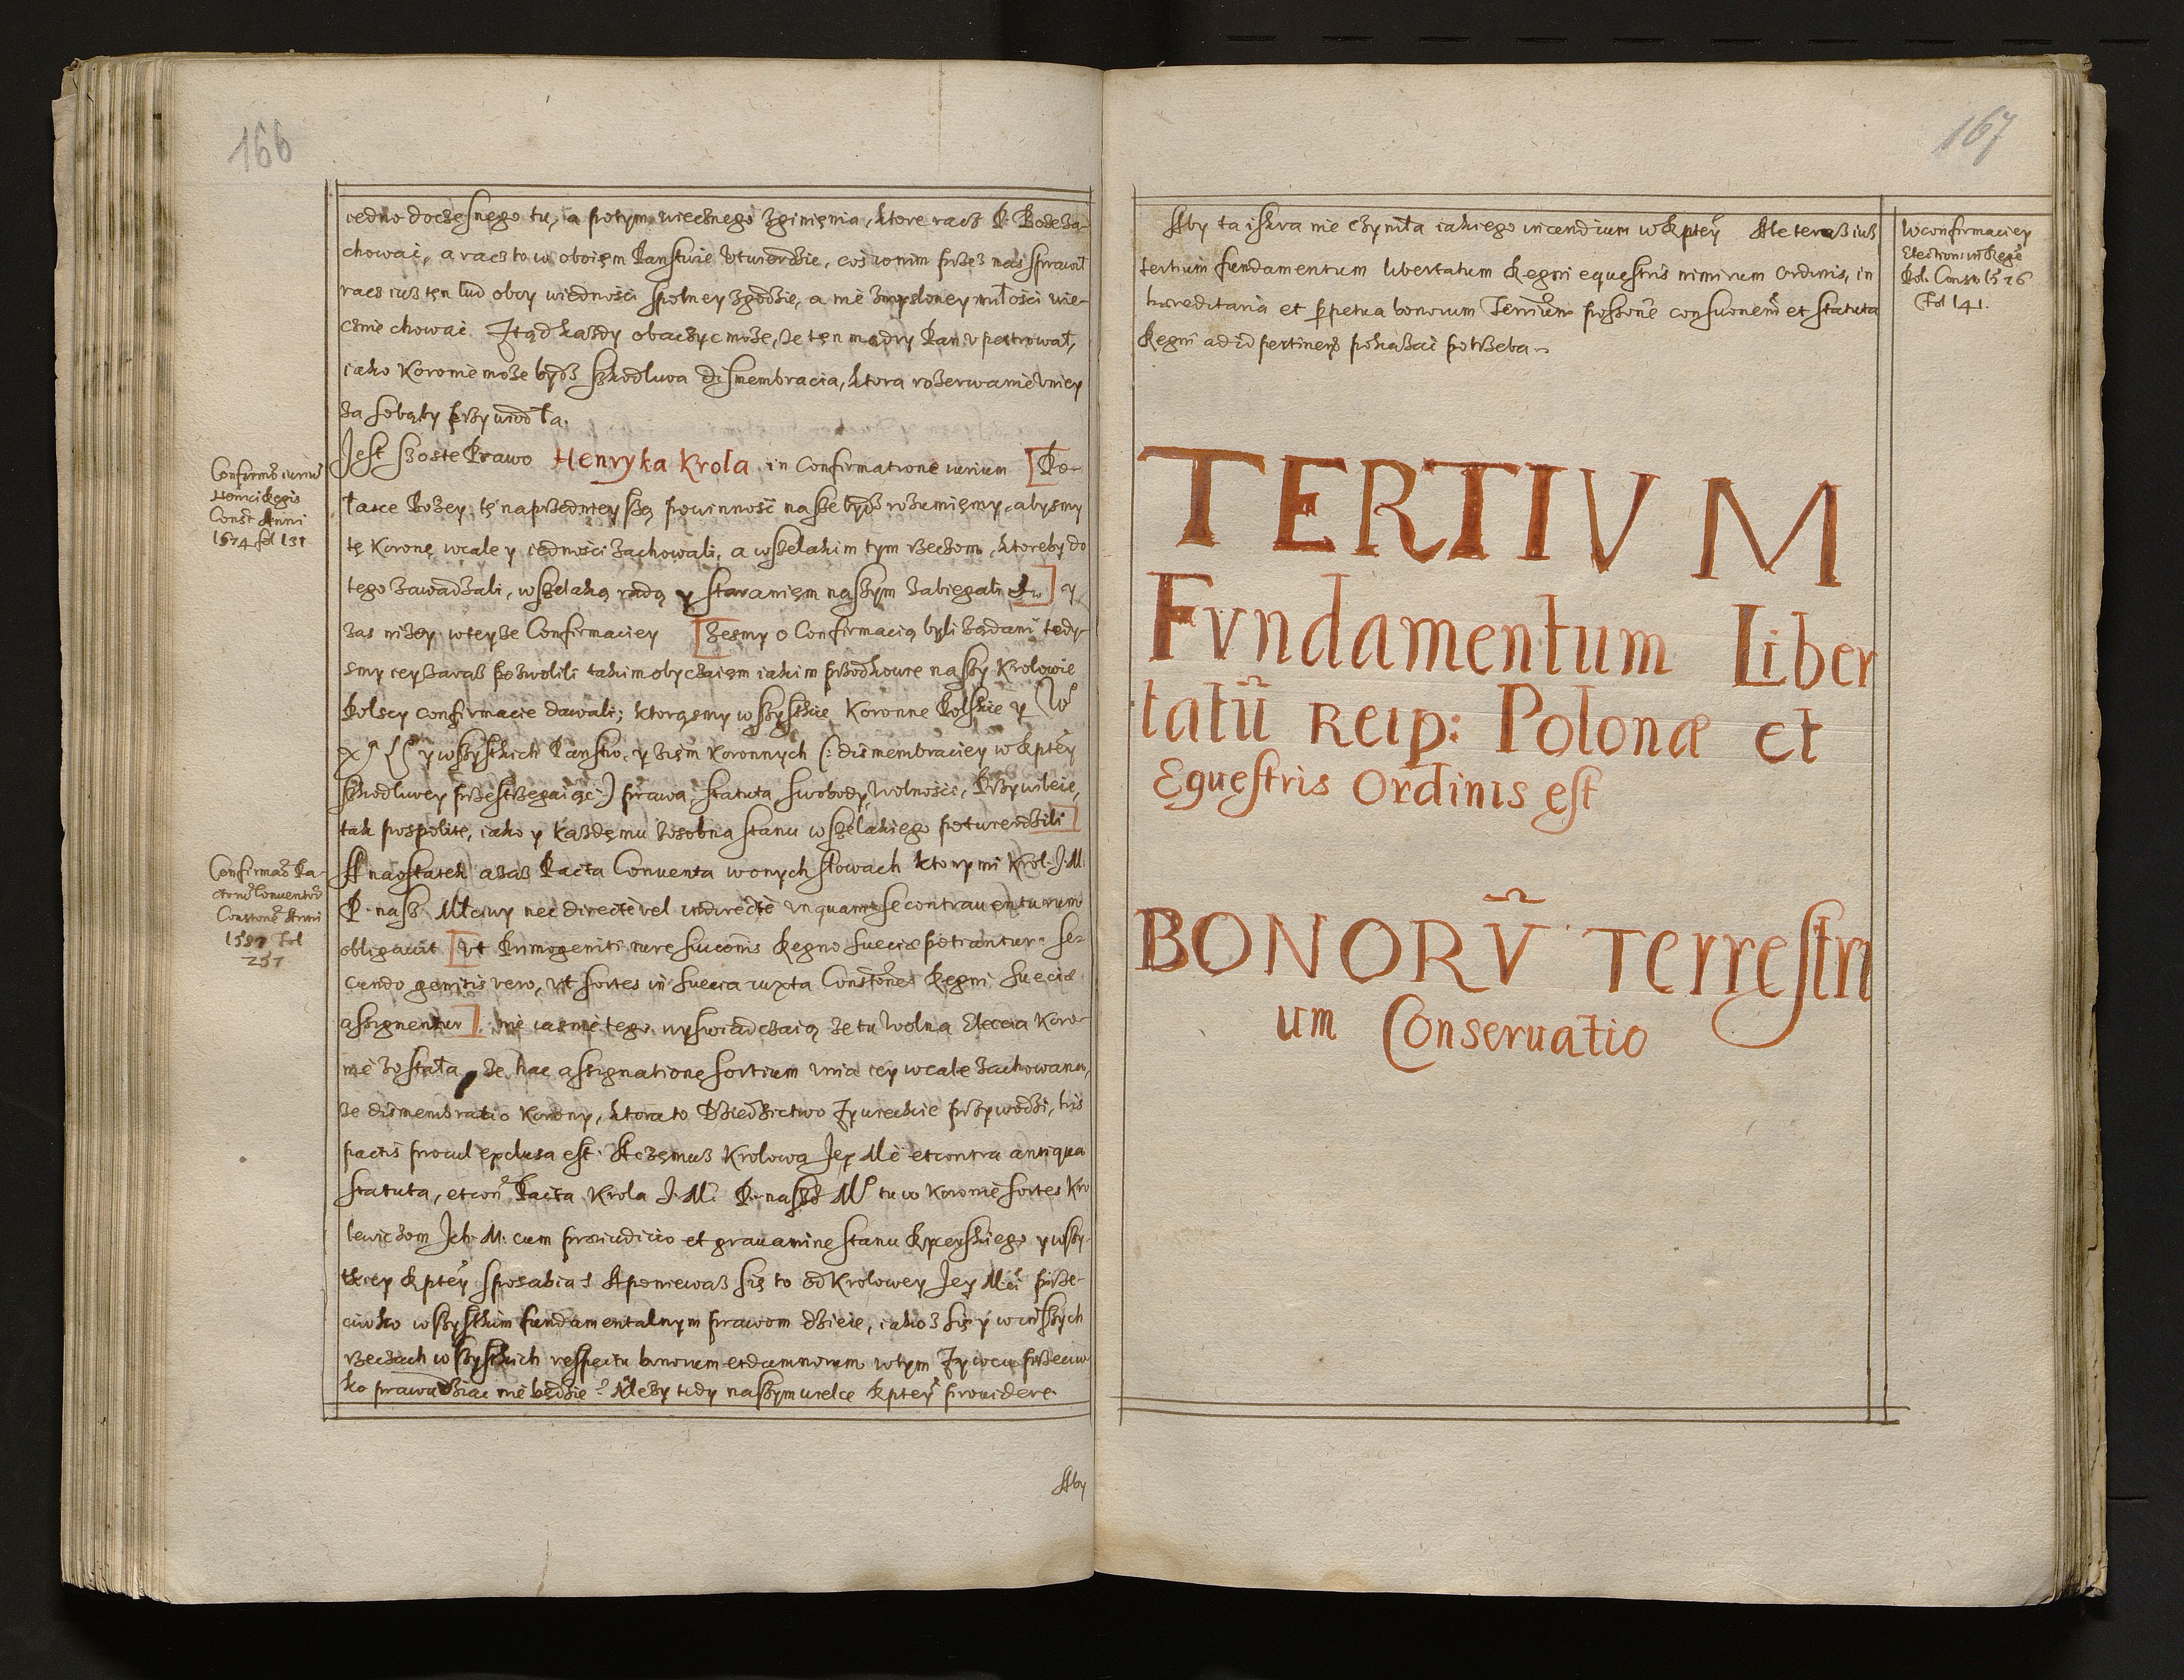 166
iedno doczesnego tu, a potym wiecznego zginięnia, ktore racz P. Boze za-
chowai, a racz to w oboięm Panstwie Utwierdzic, cos w nim przez nas sprawił
racz iuz tęn lud oboy wiedności spolney zgodzie, a nie zmysloney miłości wie-
cznie chowai. Ztąd kazdy obaczyc moze, ze tęn mądry Pan upatrował,
iako Koronie moze bydz szkodliwa dismembracia, ktora rozerwanie Uniey
za sobąby przywiodła.
Confirmō iurium
Henrici Regis
Const Anni
1574 fol 131
Jest szoste Prawo Henryka Krola in Confirmatione iurium [Po-
łasce Bozey, tę naprzednieyszą powinność nasze bydz rozumięmy, abysmy
tę Koronę wcale y iedności zachowali, a wszelakim tym rzeczom, ktoreby do
tego zawadzali, wszelaką radą y staranięm naszym zabiegali &] y
zas nizey w teyze Confirmaciey [zesmy o Confirmacią byli ządani tedy-
smy iey zaraz pozwolili takim obyczaięm iakim przodkowie naszy Krolowie
Polscy confirmacie dawali; ktorąsmy wszystkie Koronne Polskie y W
X y wszystkich Panstw, y zięm Koronnych (: dismembraciey w Rptey
szkodliwey przestrzegaiąc:) prawa, statuta, swobody, wolności, Przywileie,
tak pospolite, iako y kazdęmu zosobna stanu wszelakiego poturerdzili]
Confirmaō Pa-
ctorū Conventorū
Constonē Anni
1587 Fol
257
A naostatek azaz Pacta Conuenta w onych słowach ktorymi Krol. J. M.
P. nasz Mlciwy nec directè vel indirectè unquam se contrauenturum
obligauit [Vt Primogeniti iure sucōnis Regno Sueciæ potiantur. se-
cundo genitis vero, ut sortes in Suecia iuxta Constōnes Regni Sueciæ
assignentur]. nie iasnie tego wyswiadczaią ze tu Wolna Eleccia Koro-
nie została, ze hac assignatione sortium unia iey wcale zachowana,
ze dismembratio Korony, ktora to Dziedzictwo Zywieckie przywodzi, his
pactis procul exclusa est. A czemuz Krolowa Jey Mc et contra antiqua
statuta, et con Pacta Krola J. M. P. naszo M tu w Koronie sortes Kro
lewiczom Ich. M. cum præiudicio et grauamine stanu Rycerskiego y wszy-
tkiey Rptey sposabia? A poniewaz się to od Krolowey Jey Mci prze-
ciwko wszystkim fundamentalnym prawom dzieie, iakoz się y w inszych
rzeczach wszystkich respectu bonorum et damnorum w tym Zywcu przeciw
ko prawu dziać nie będzie? Nalezy tedy naszym wielce Rptey prouidere
Aby
167
Aby ta iskra nie czyniła iakiego incendium w Rptey Ale teraz iuz
tertium fundamentum libertatum Regni equestris nimirum Ordinis, in
hæreditaria et perpetua bonorum Terrium possōne consuonem et statuta
Regni ad id pertinens pokazai potrzeba.
W confirmaciey
Electionis in Rege
Pol. Const. 1576
Fol 141.
TERTIVM
Fvndamentum Liber
tatū Reip: Polonæ et
Equestris Ordinis est
BONORV̄ Terrestri
um Conseruatio